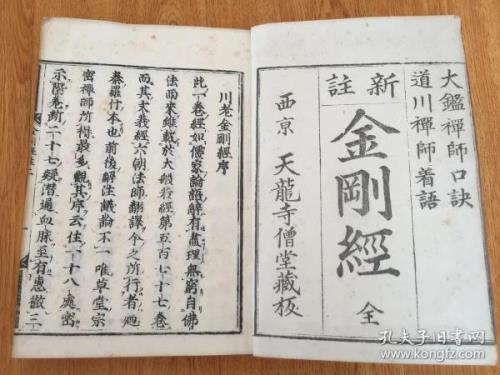 大鑑禪師口訣
道川禪師着語
新註
金剛經
全
西京 天龍寺僧堂藏板
川老金剛經序
此一卷經如儒家論語辭有盡理無窮自佛
法西來雖載於大般若經第五百七十七卷
而其文義經六朝法師翻譯今之所行者廼
秦羅什本也前後解注議論不一唯草堂宗
密禪師所得最多觀其序云住一十八處密
示階差斷二十七疑潛通血脉至有惠徹三
孔夫子旧书网
www.kongfz.com